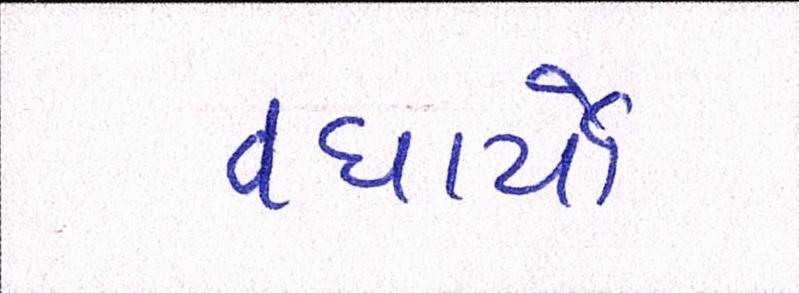 વધાર્યો